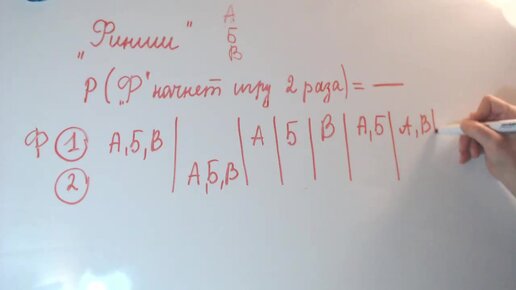 "Финиш" А
Б
В
P("Ф" начнет игру 2 раза) = —
Ф 1 А,Б,В | | А | Б | В | А,Б | А,В |
2 А,Б,В